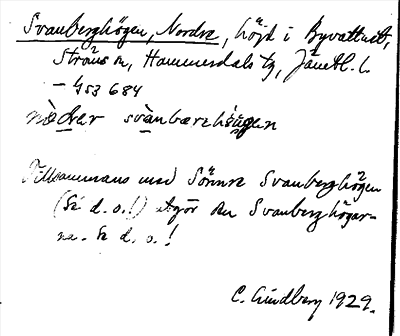 Svanberghögen, Nordre, höjd i Byvattnet,
Ströms sn, Hammerdals tg, Jämtl. l.
– 453 684
svànbærɜhö̀gen
Tillsammans med Sönnre Svanberghögen
(se d. o.!) utgör den Svanberghögar-
na. Se d. o.!
C. Lindberg 1929.